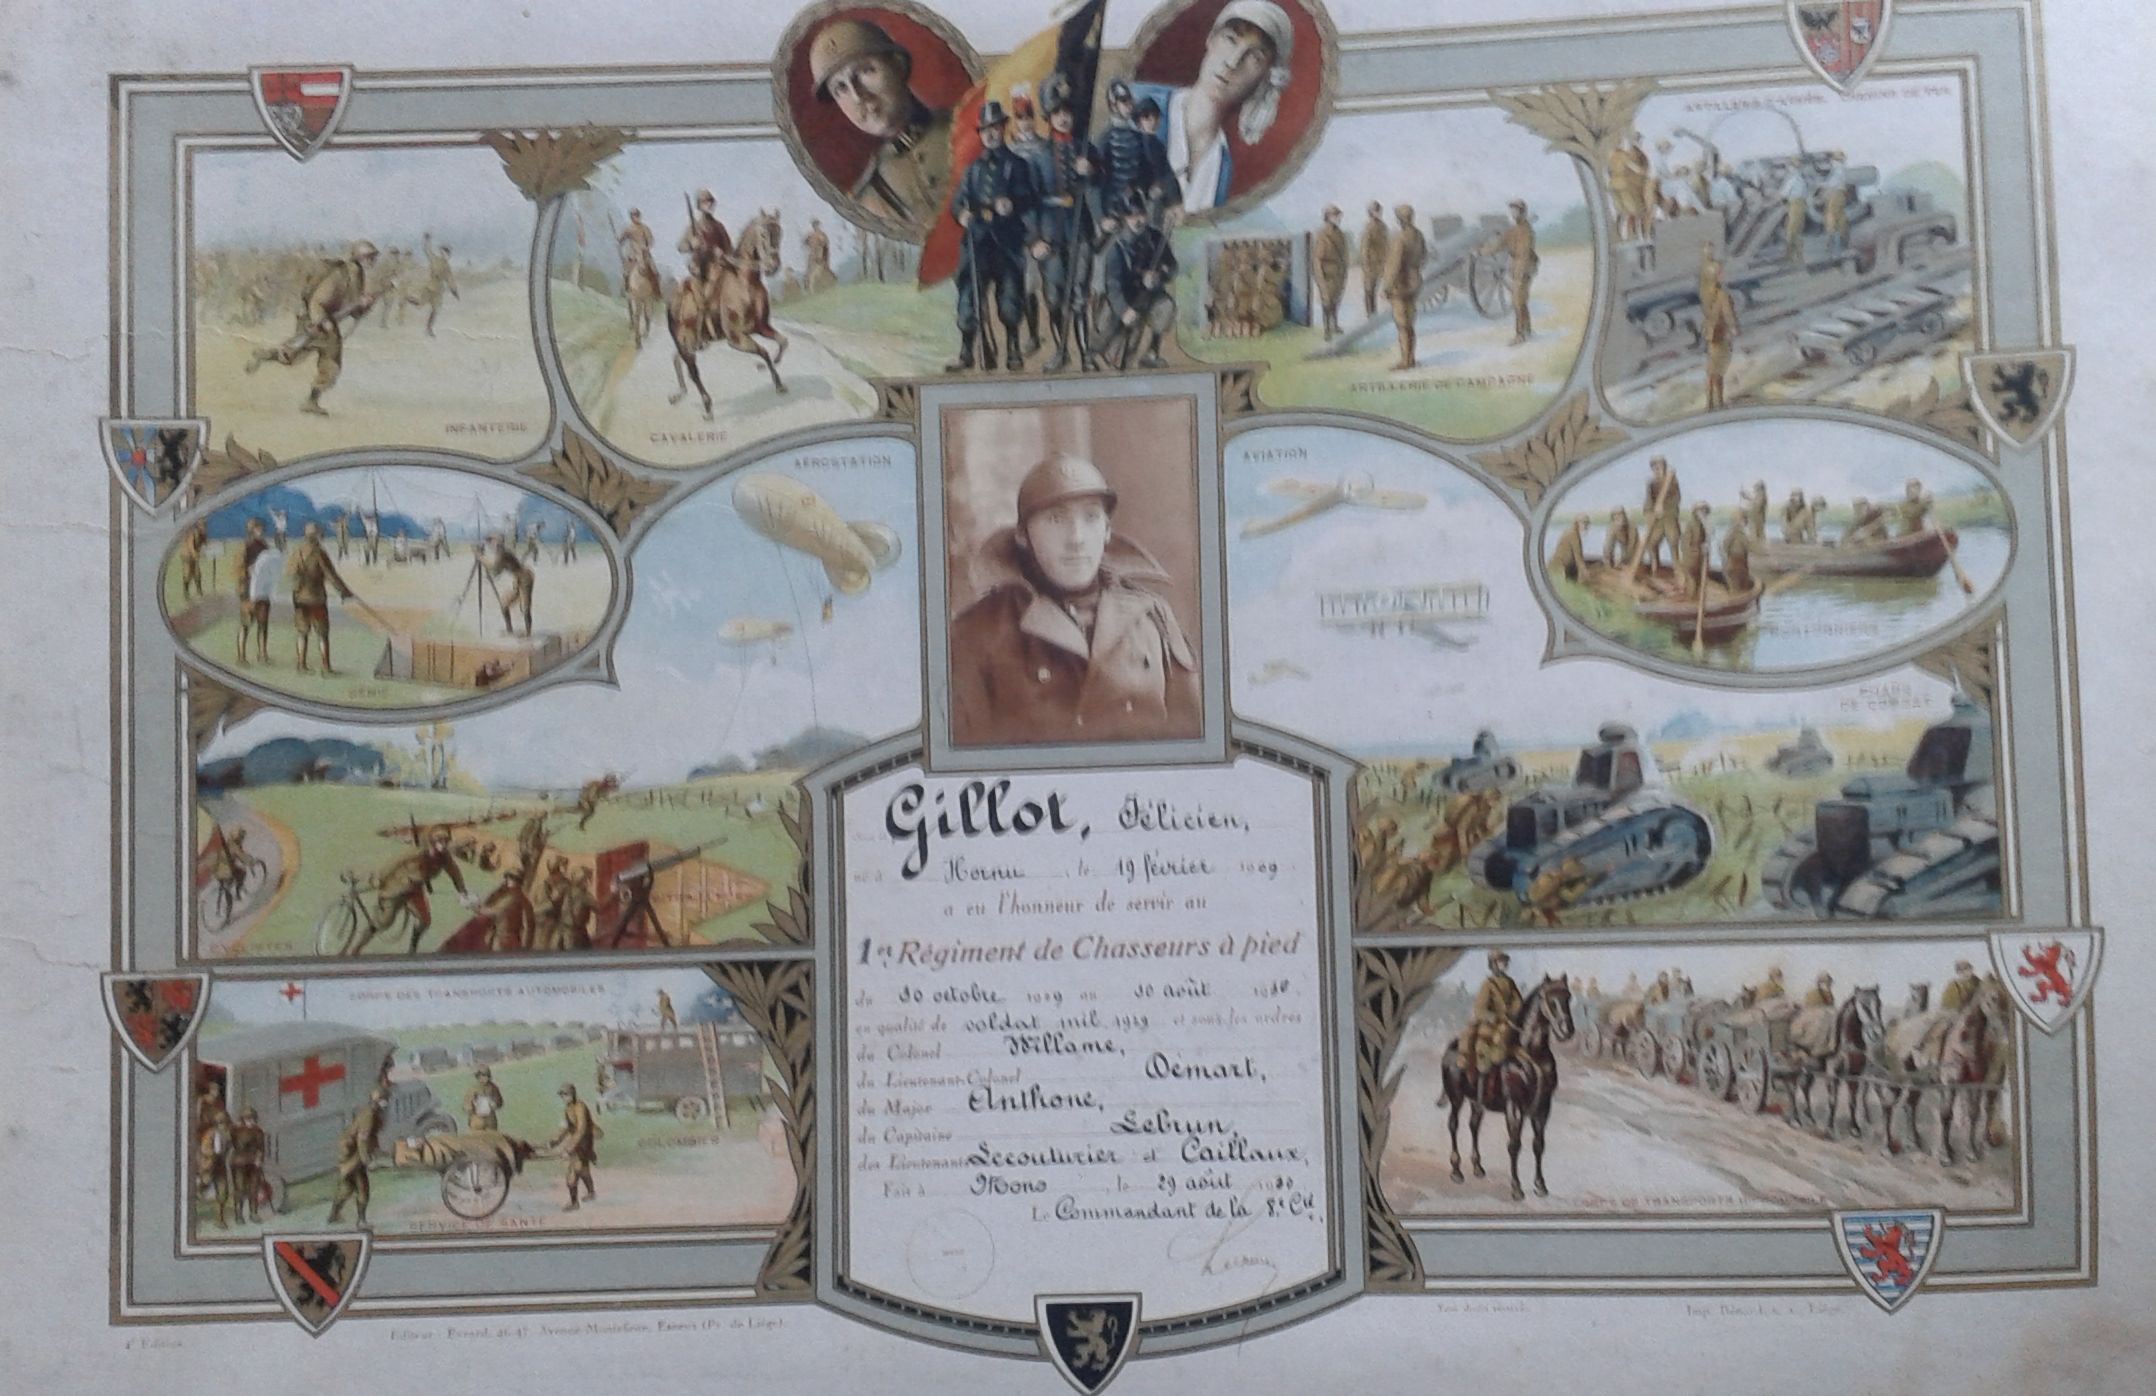 ARTILLERIE D'ARMÉE
INFANTERIE
CAVALERIE
ARTILLERIE DE CAMPAGNE
AÉROSTATION
AVIATION
GÉNIE
PONTONNIERS
CHARS
DE COMBAT
CYCLISTES
CORPS DES TRANSPORTS AUTOMOBILES
COLOMBIER
SERVICE DE SANTÉ
CORPS DE TRANSPORTS
Gillot, Félicien,
né à Hornu, le 19 février 1909
a eu l'honneur de servir au
1er Régiment de Chasseurs à pied
du 30 octobre 1929 au 30 août 1930.
en qualité de soldat mil. 1929 et sous les ordres
du Colonel Willame,
du Lieutenant-Colonel Démart,
du Major Anthone,
du Capitaine Lebrun,
des Lieutenants Lecouturier et Caillaux,
Fait à Mons, le 29 août 1930
Le Commandant de la 8e Cie,
Lebrun
Imp. Bénard, s. a., Liége.
Editeur : Evrard, 41-47, Avenue Montefiore, Esneux (Pr. de Liége).
4e Edition